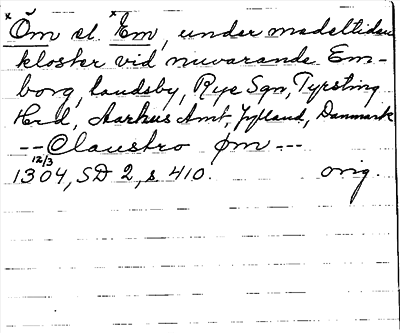 ˣÖm el. ˣEm, under medeltiden
kloster vid nuvarande Em-
borg, landsby, Rye Sgn, Tyrsting
Hrd, Aarhus Amt, Jylland, Danmark
-- Claustro Øm ---
12/3
1304, SD 2, s 410. orig.